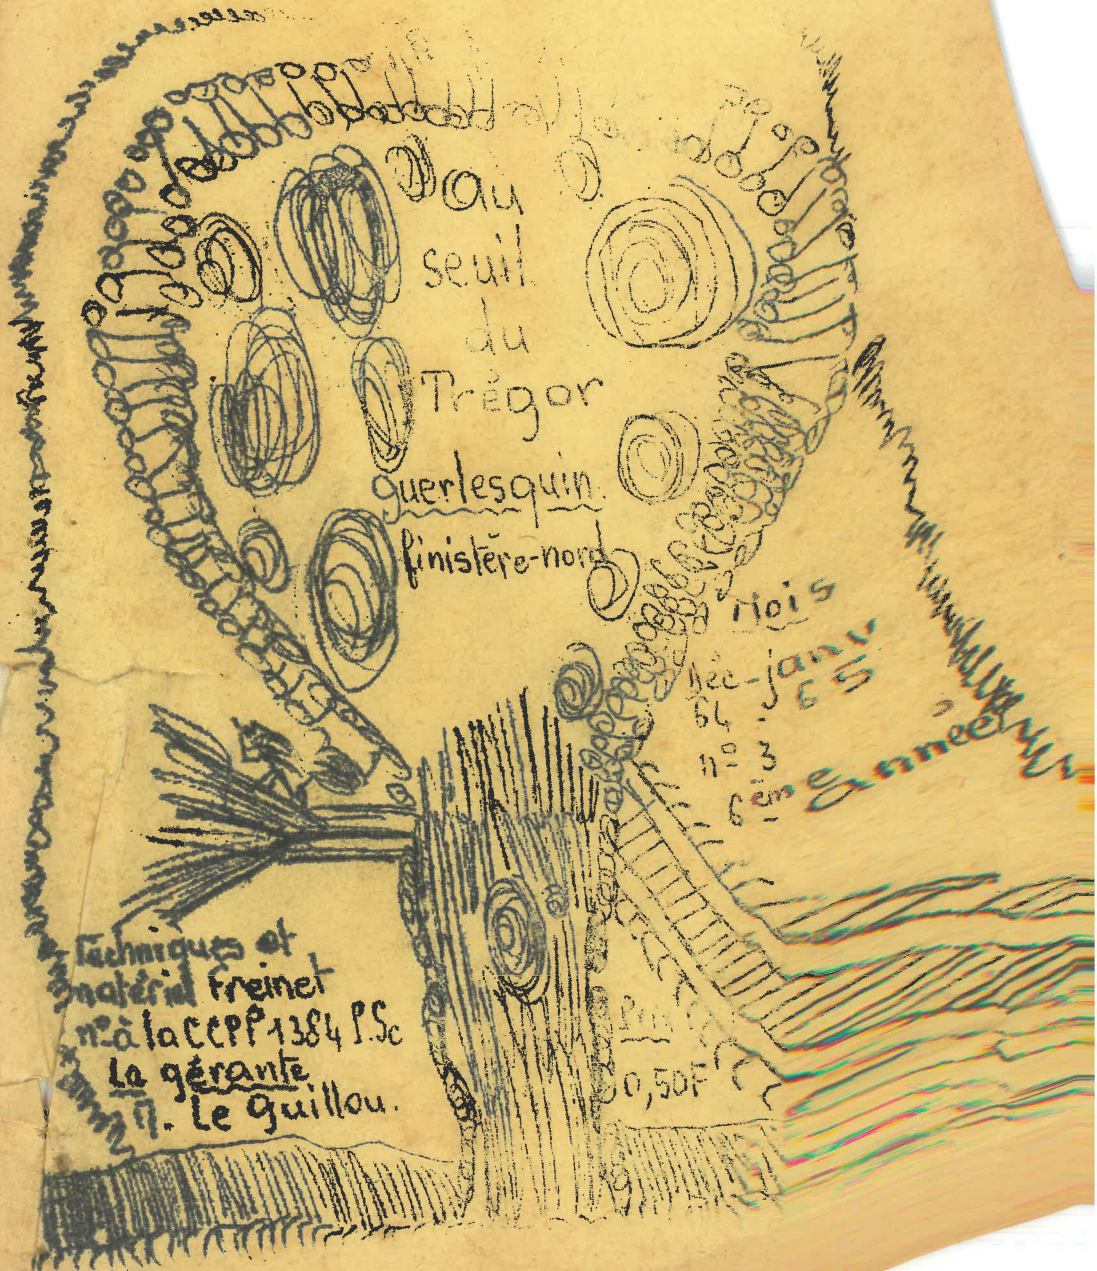 au
seuil
du
Trégor
guerlesquin.
finistère-nord
Mois
Déc-janv
64 - 65
n° 3
6ème année
Techniques et
matériel freinet
n° à la CCPP 1384 P.Sc
La gérante
M. Le Guillou.
Prix
0,50F